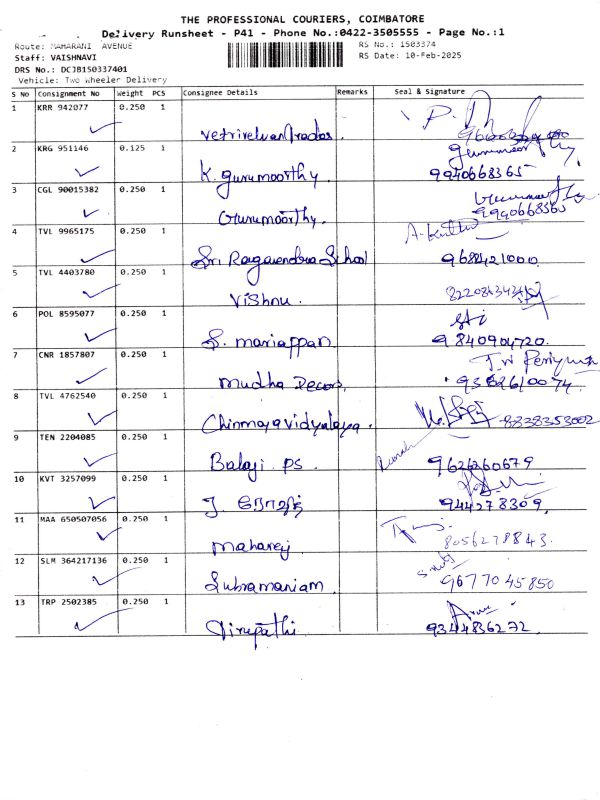 THE PROFESSIONAL COURIERS, COIMBATORE
Delivery Runsheet - P41 - Phone No.:0422-3505555 - Page No.:1
Route: MAHARANI AVENUE
RS No.: 1503374
Staff: VAISHNAVI
RS Date: 10-Feb-2025
DRS No.: DCJB150337401
Vehicle: Two Wheeler Delivery
S No Consignment No Weight PCS Consignee Details Remarks Seal & Signature
1 KRR 942077 0.250 1
2 KRG 951146 0.125 1 K. Gurumoorthy 9940668365
3 CGL 90015382 0.250 1 Gurumoorthy. 9940668365
4 TVL 9965175 0.250 1 Sri Ragavendra School 9688421000
5 TVL 4403780 0.250 1 Vishnu.
6 POL 8595077 0.250 1 S. mariappan 9840904720.
7 CNR 1857807 0.250 1 Mudha Decors 9382610074.
8 TVL 4762540 0.250 1 Chinmayavidyalaya. 8838353002
9 TEN 2204085 0.250 1 Balaji PS. 9626360679
10 KVT 3257099 0.250 1 J. 944278309,
11 MAA 650507056 0.250 1 Maharaj 8056278843.
12 SLM 364217136 0.250 1 Subramaniam 9677045850
13 TRP 2502385 0.250 1 Tirupathi 9344836272